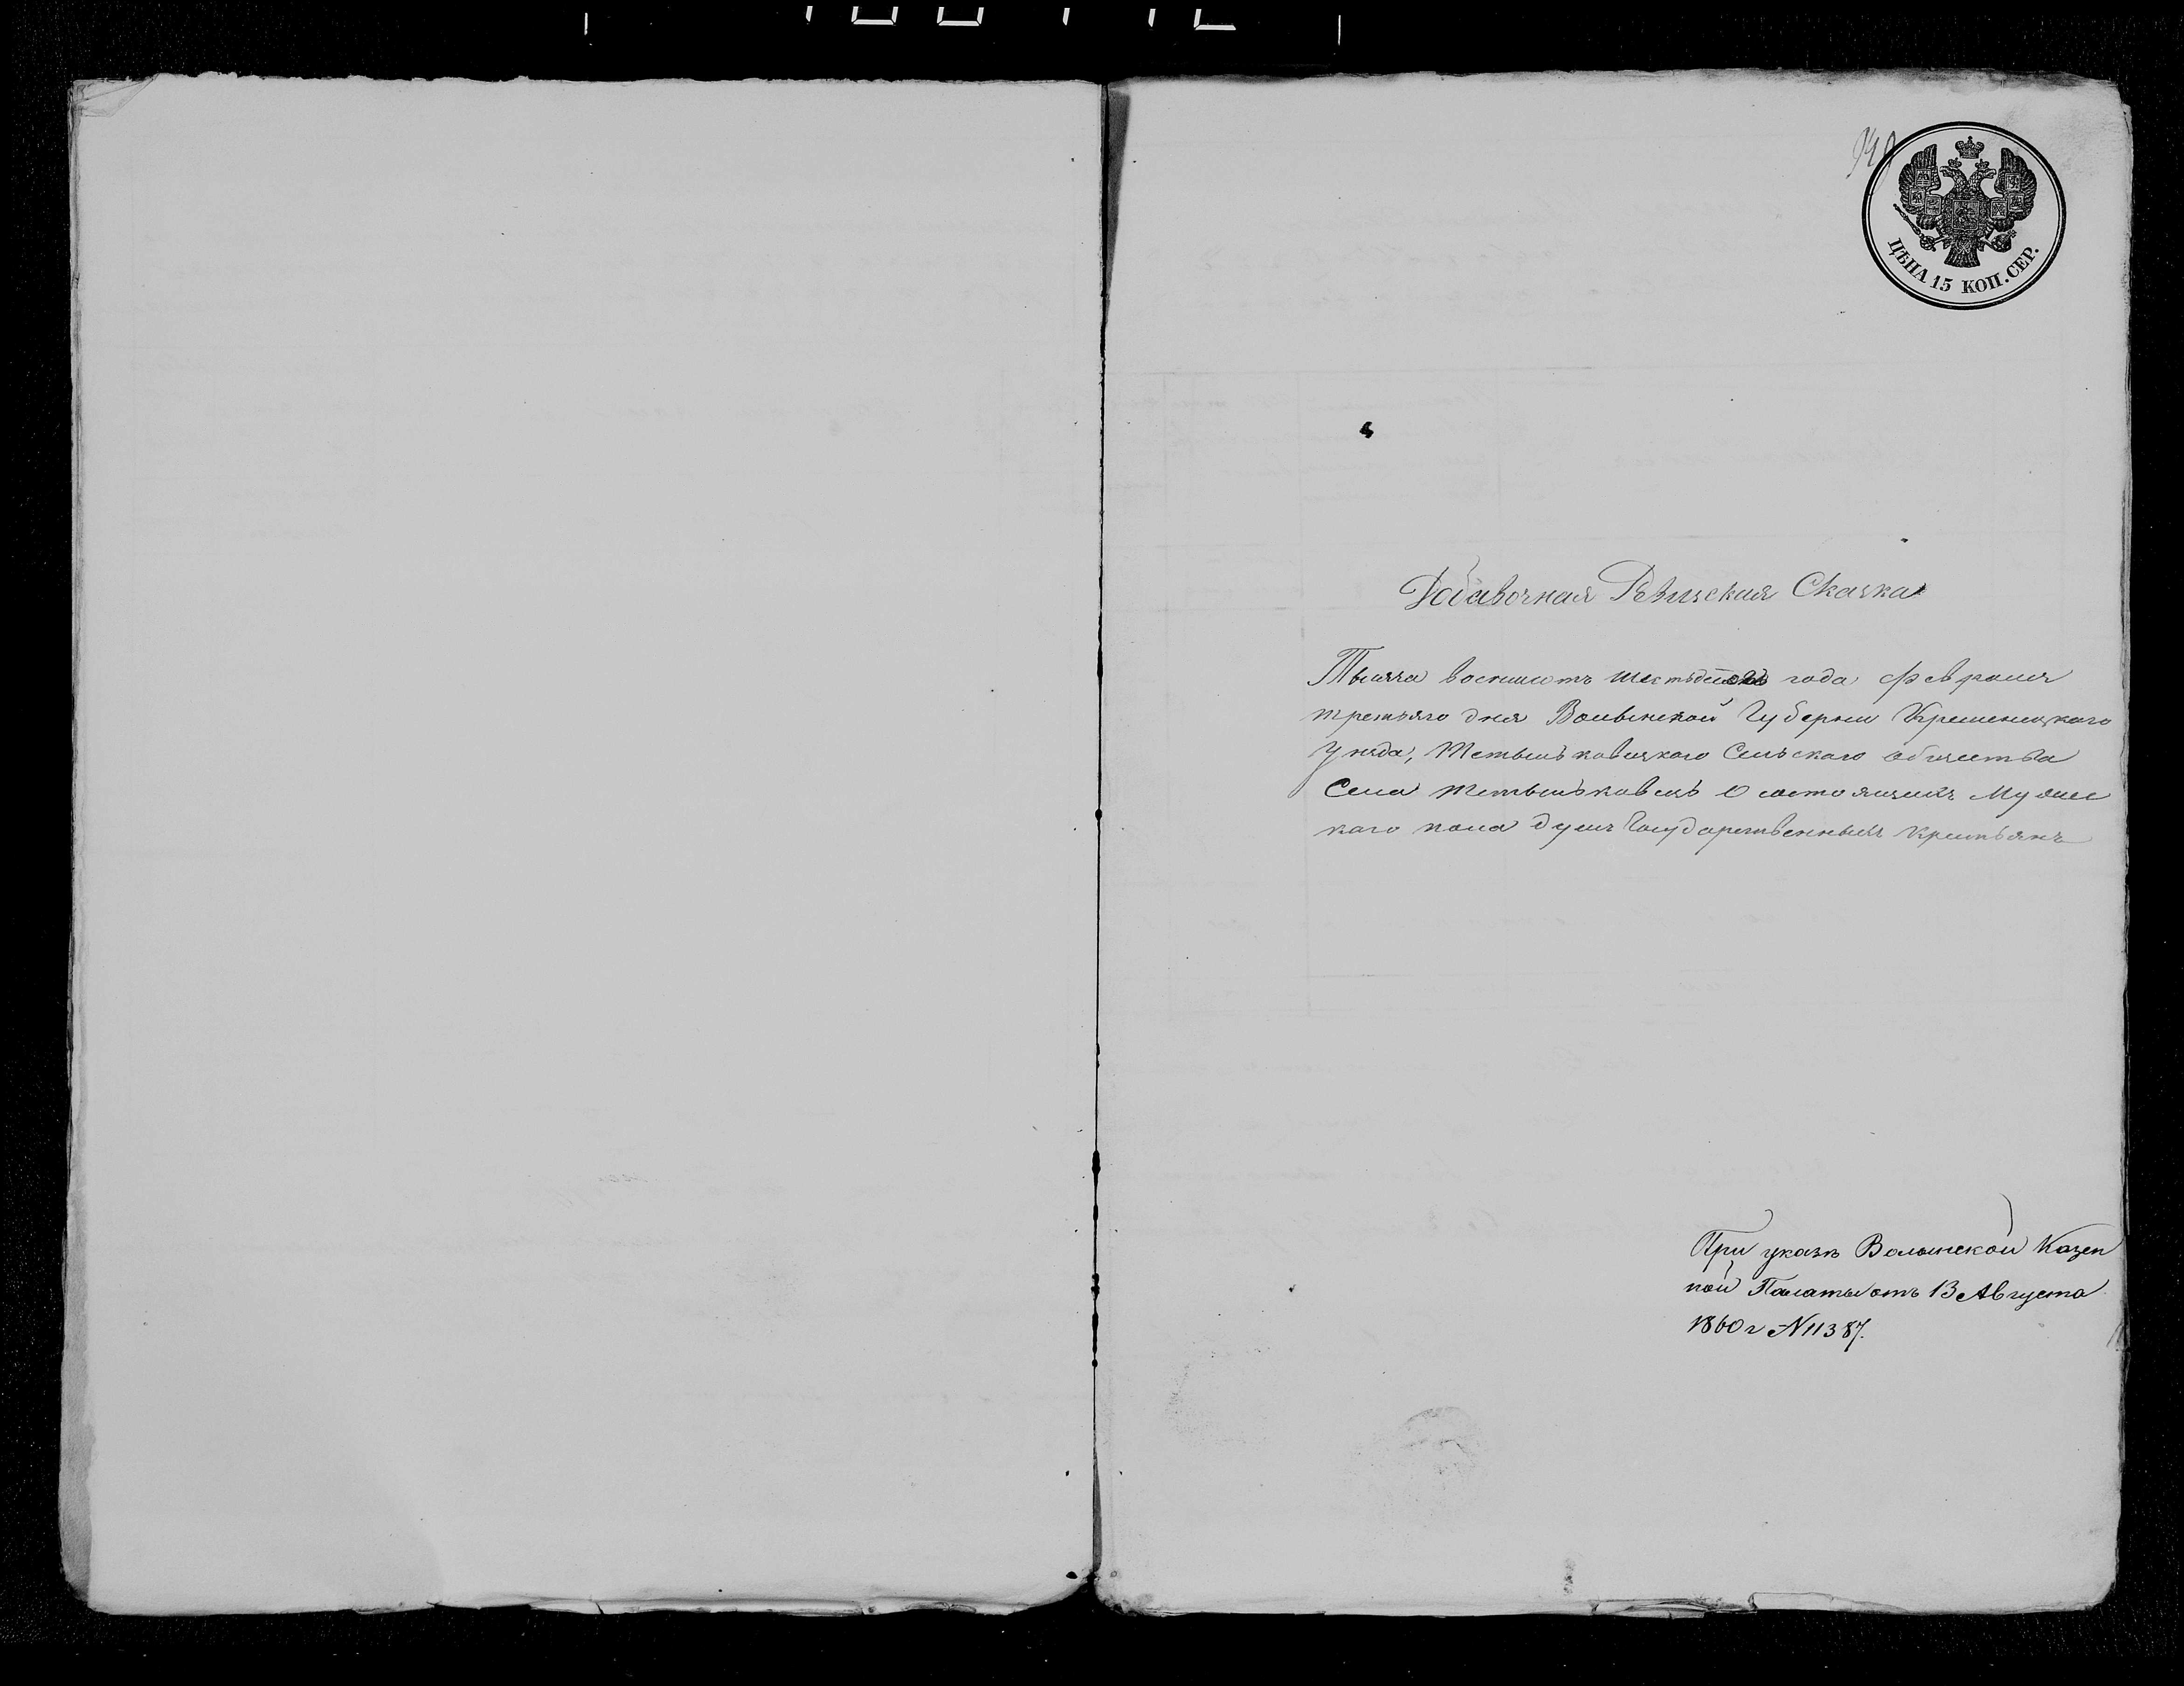 ЦѢНА 15 КОП. СЕР.
Добавочная Ревизская Сказка
Тысяча восемьсотъ года Февраля
третьяго дня Волынской Губерніи Кременецкаго
Уѣзда, Тетыльковецкаго Сельскаго общества
Села Тетыльковецъ о состоящихъ Мужес
каго пола душъ Государственныхъ крестьянъ
При указѣ Волынской Казен
ной Палаты отъ 13 Августа
1860 г N 11387.